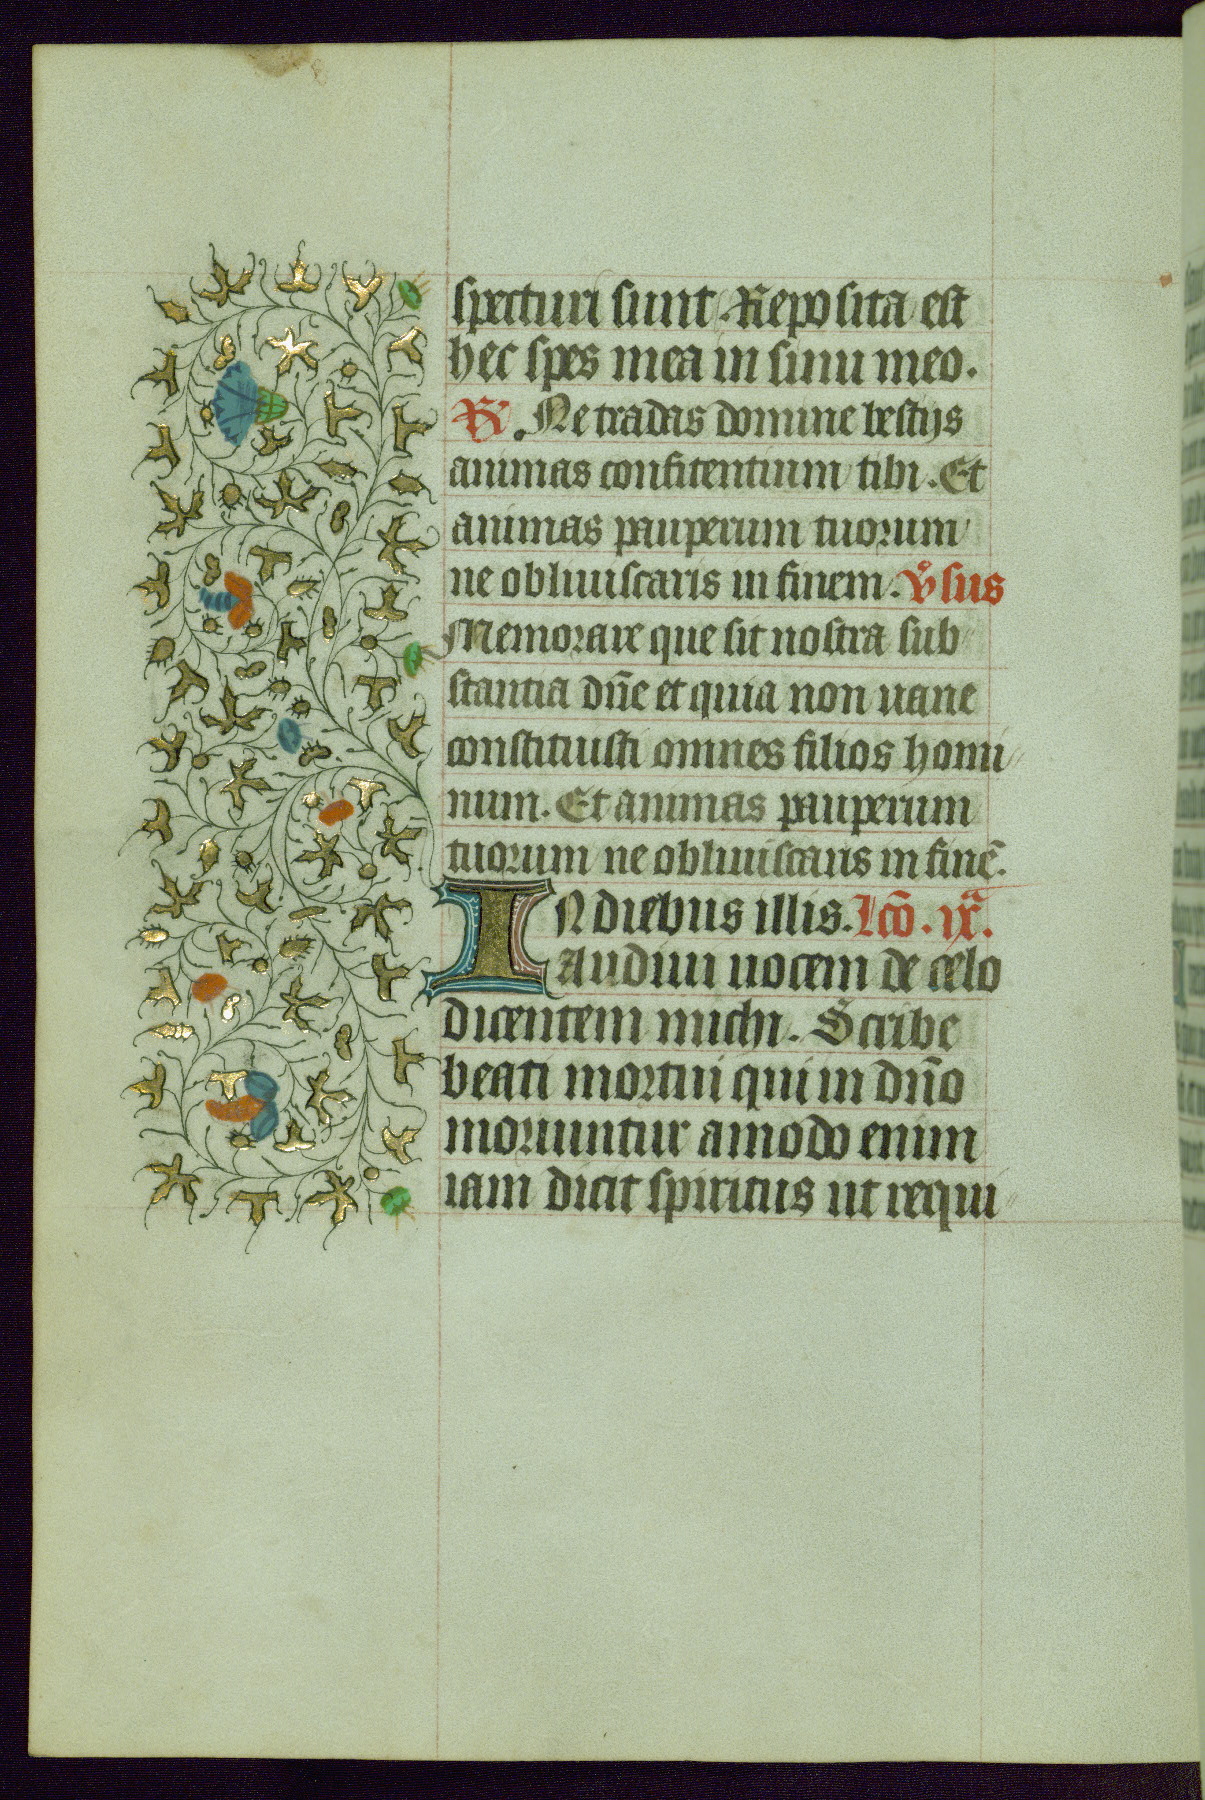 specturi sunt. Reposita est
hec spes mea in sinu meo.
R̃. Ne tradas domine bestijs
animas confitentium tibi. Et
animas pauperum tuorum
ne obliuiscaris in finem. v̊sus
Memorare que sit nostra sub
stantia dn̄e et quia non uane
constituisti omnes filios homi
num. Et animas pauperum
tuorum ne obliuiscaris in finē.
In diebus illis. Lc̄o. ixᵃ.
Audiui uocem de celo
dicentem michi. Scribe
beati mortui qui in dn̄o
moriuntur amodo enim
iam dicit spiritus ut requi